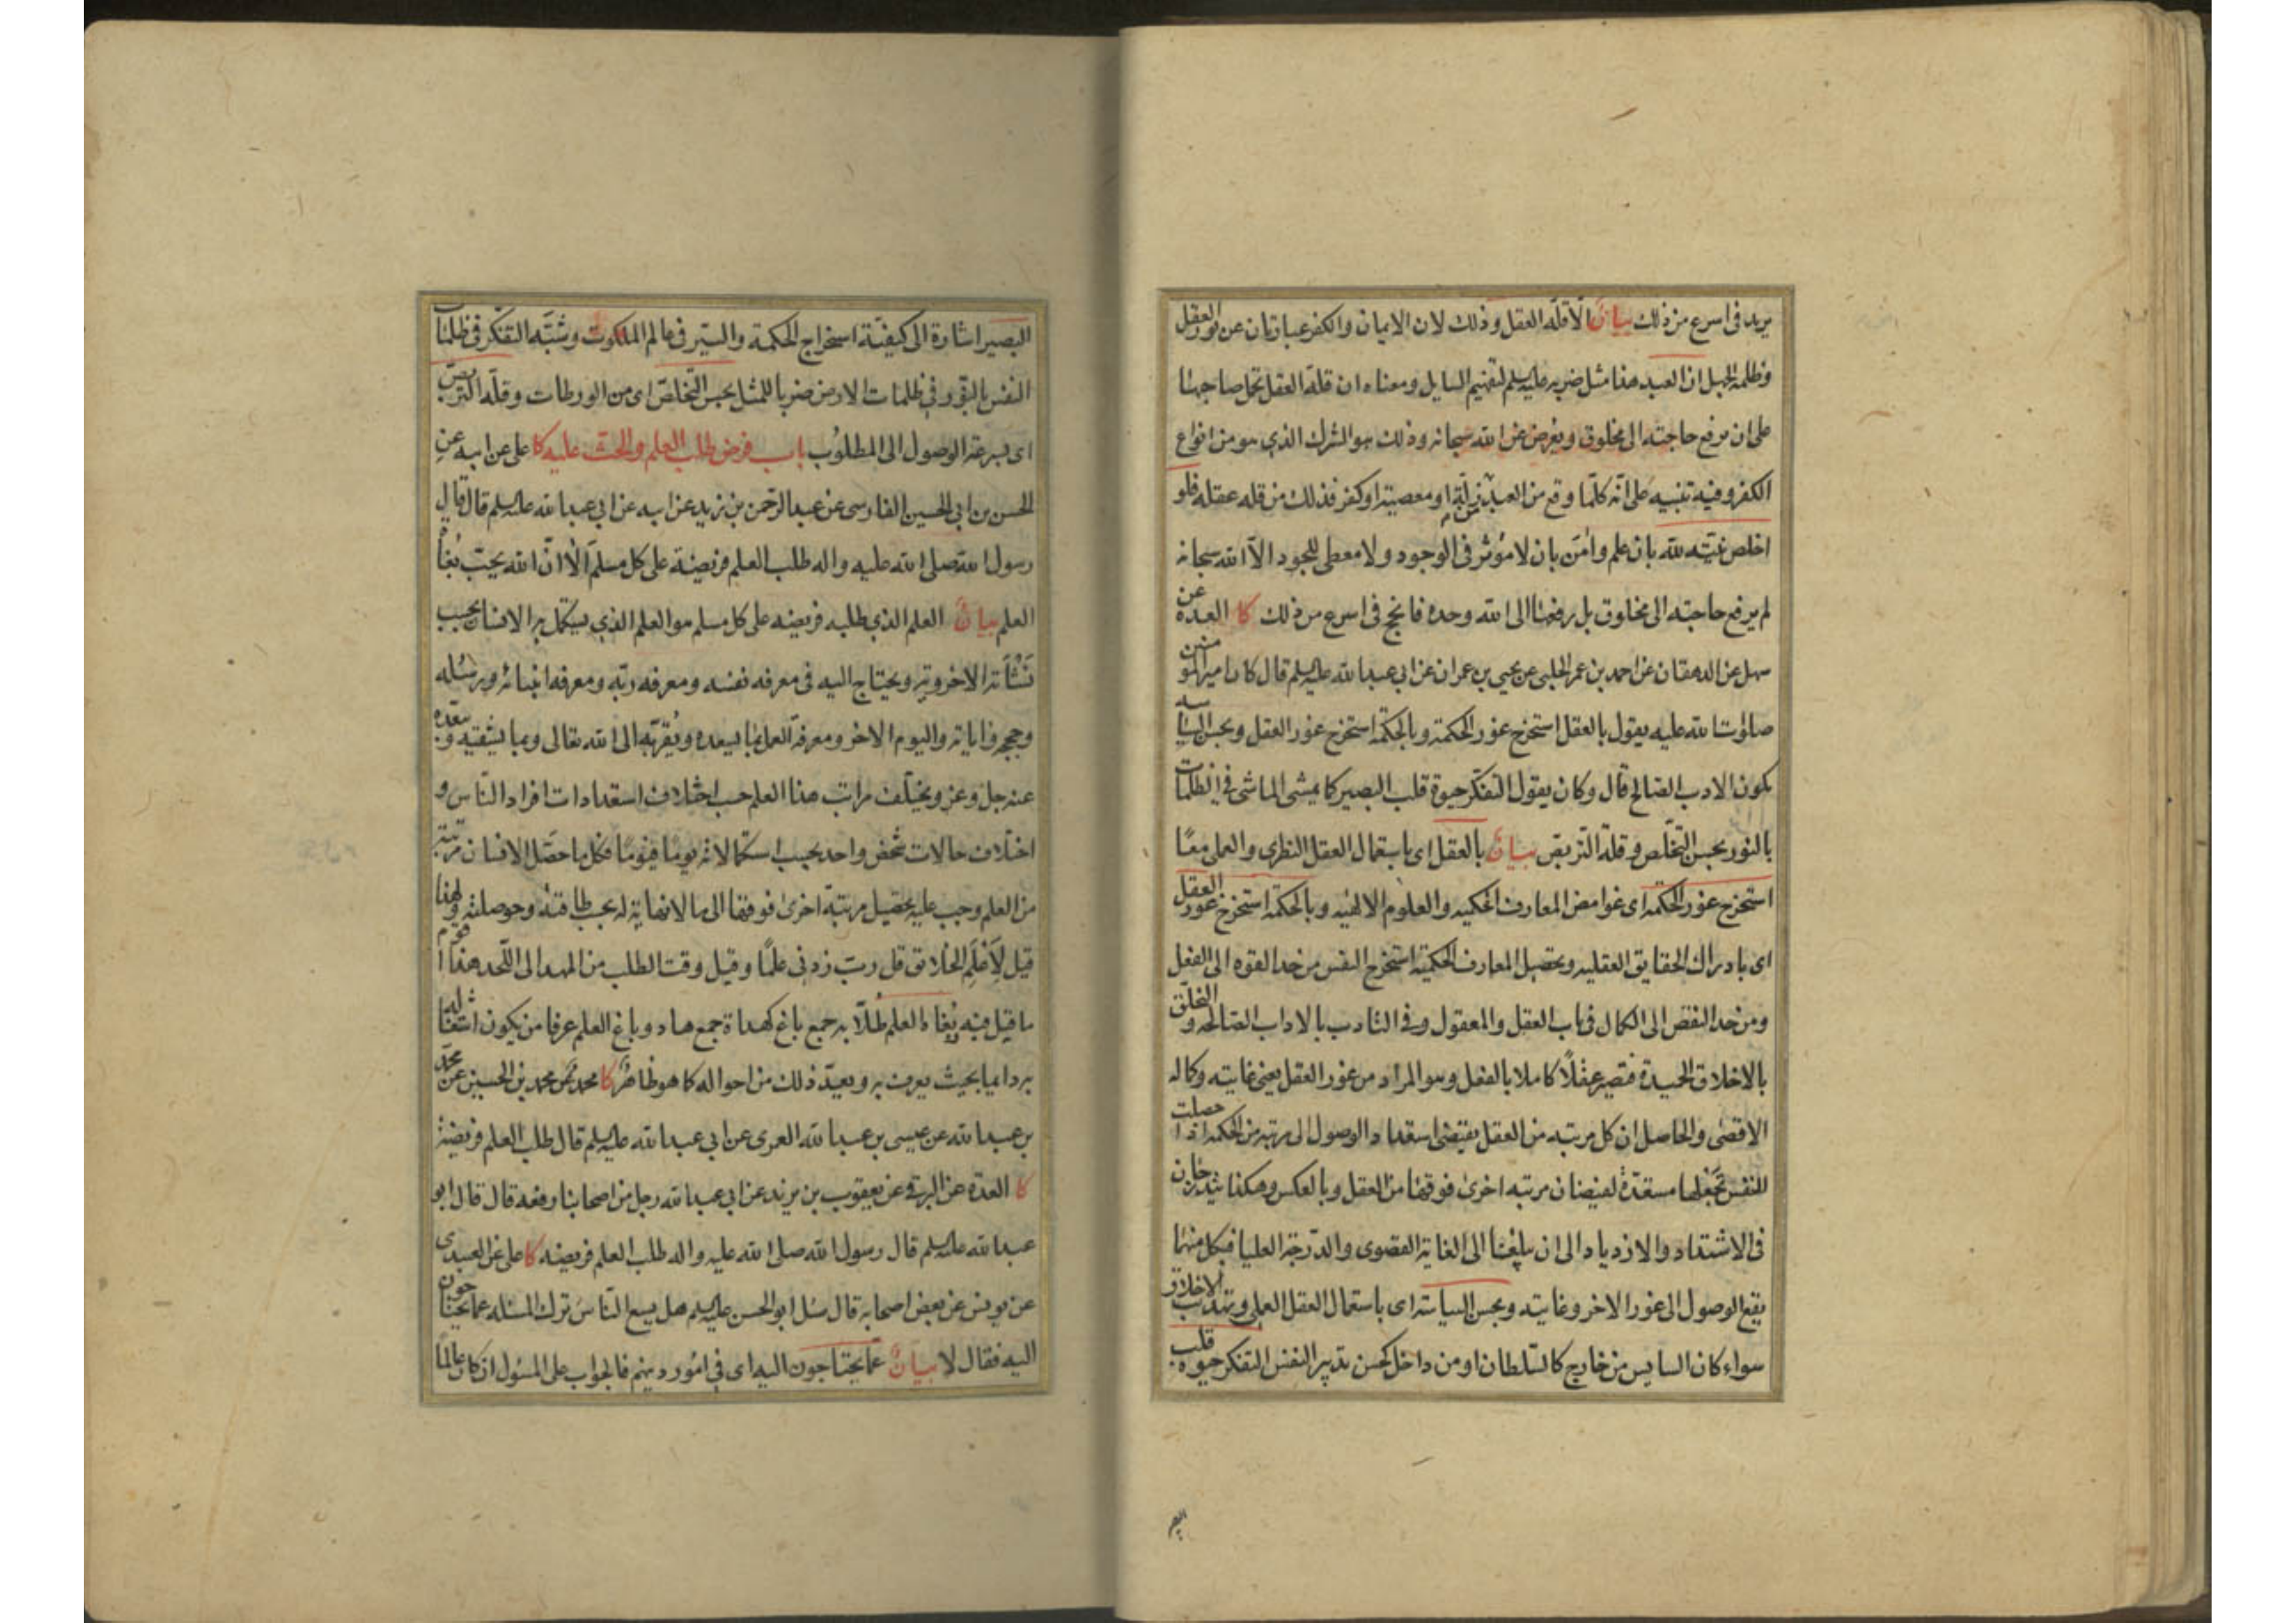 يريد في اسرع من ذلك بيان الا قلة العقل وذلك لان الايمان والكفر عبارتان عن نور العقل
وظلمة الجهل اذ العبد هذا مثل ضربه عليه السلم لتفهيم السايل ومعناه ان قلة العقل تحمل صاحبها
على ان يرفع حاجته الى مخلوق ويعرض عن الله سبحانه وذلك هو الشرك الذي هو من انواع
الكفر وفيه تنبيه على انه كلما وقع من العبد من زلة او معصية او كفر فذلك من قله عقله فلو
اخلص نيته لله بان علم وامن بان لا مؤثر في الوجود ولا معطي للجود الا الله سبحانه
لم يرفع حاجته الى مخلوق بل رفعها الى الله وحده فانجح في اسرع من ذلك كا العدة عن
سهل عن الدهقان عن احمد بن عمر الحلبي عن يحيى بن عمران عن ابي عبد الله عليه السلم قال كان امير المومنين
صلوات الله عليه يقول بالعقل استخرج غور الحكمة وبالحكمة استخرج غور العقل وبحسن السياسه
يكون الادب الصالح قال وكان يقول التفكر حيوة قلب البصير كما يمشي الماشي في الظلمات
بالنور بحسن التخلص وقلة التربص بيان بالعقل اي باستعمال العقل النظري والعملي معًا
استخرج غور الحكمة اي غوامض المعارف الحكميه والعلوم الالهيه وبالحكمة استخرج غور العقل
اي بادراك الحقايق العقليه وتحصيل المعارف الحكمية استخرج النفس من حد القوه الى الفعل
ومن حد النقص الى الكمال في باب العقل والمعقول وفي التادب بالاداب الصالحه والتخلق
بالاخلاق الحسنة فتصير عقلًا كاملا بالفعل وهو المراد من غور العقل يعني غايته وكماله
الاقصى والحاصل ان كل مرتبه من العقل يقتضى استعداد الوصول الى مرتبه من الحكمة اذا حصلت
للنفس تجعلها مستعدة لفيضان مرتبه اخرى فوقها من العقل وبالعكس وهكذا يتدرجان
في الاشتداد والازدياد الى ان يبلغا الى الغاية القصوى والدرجة العليا فبكل منهما
يقع الوصول الى غور الاخر وغايته وبحسن السياسة اي باستعمال العقل العملي وتهذيب الاخلاق
سواء كان السايس من خارج كالسلطان او من داخل كحسن تدبير النفس التفكر حيوة قلب
البصير اشارة الى كيفية استخراج الحكمة والسير في عالم الملكوت وشبه التفكر في ظلمات
النفس بالنور في ظلمات الارض ضربا للمثل بحسن التخلص اي من الورطات وقلة التربص
اي بسرعة الوصول الى المطلوب باب فرض طلب العلم والحث عليه كا علي عن ابيه عن
الحسن بن ابي الحسين الفارسي عن عبد الرحمن بن زيد عن ابيه عن ابي عبد الله عليه السلم قال قال
رسول الله صلى الله عليه واله طلب العلم فريضة على كل مسلم الا ان الله يحب بغاة
العلم بيان العلم الذي طلبه فريضه على كل مسلم هو العلم الذي يستكمل به الانسان بحسب
نشأته الاخروية ويحتاج اليه في معرفه نفسه ومعرفه ربه ومعرفه انبيائه ورسله
وحججه واياته واليوم الاخر ومعرفة العمل بما يسعده ويقربه الى الله تعالى وبما يشقيه ويبعده
عنه جل وعز ويختلف مراتب هذا العلم حسب اختلاف استعدادات افراد الناس و
اختلاف حالات شخص واحد بحسب استكمالاته يوما فيوما فكل ما حصل الانسان مرتبة
من العلم وجب عليه تحصيل مرتبة اخرى فوقها الى ما لا نهاية له بحسب طاقته وحوصلته ولهذا
قيل لاعلم الخلائق قل رب زدني علمًا وقيل وقت الطلب من المهد الى اللحد هذا اقوم
ما قيل فيه وبغاة العلم طلابه جمع باغ كهداة جمع هاد وباغ العلم عرفا من يكون اشتغاله
به دايما بحيث يعرف به ويعد ذلك من احواله كما هو ظاهر كا محمد عن محمد بن الحسين عن محمد
بن عبد الله عن عيسى بن عبد الله العمري عن ابي عبد الله عليه السلم قال طلب العلم فريضة
كا العدة عن البرقي عن يعقوب بن يزيد عن ابي عبد الله رجل من اصحابنا رفعه قال قال ابو
عبد الله عليه السلم قال رسول الله صلى الله عليه واله طلب العلم فريضه كا علي عن العبيدى
عن يونس عن بعض اصحابه قال سئل ابو الحسن عليه السلم هل يسع الناس ترك المسئله عما يحتاجون
اليه فقال لا بيان عما يحتاجون اليه اي في امور دينهم فالجواب على المسئول ان كان عالما